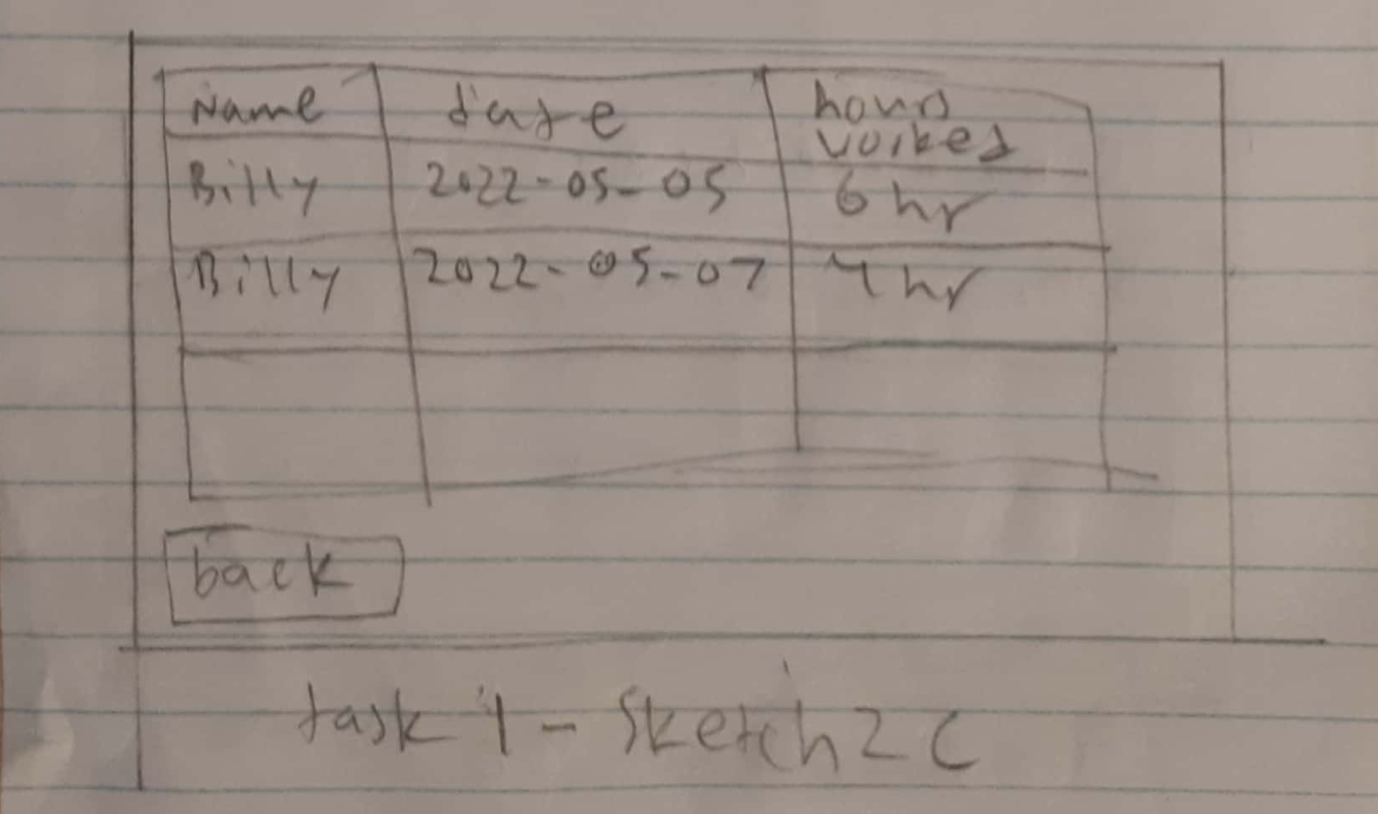 Name date hours
worked
Billy 2022-05-05 6 hr
Billy 2022-05-07 hr
back
task 1 - Sketch 2 C